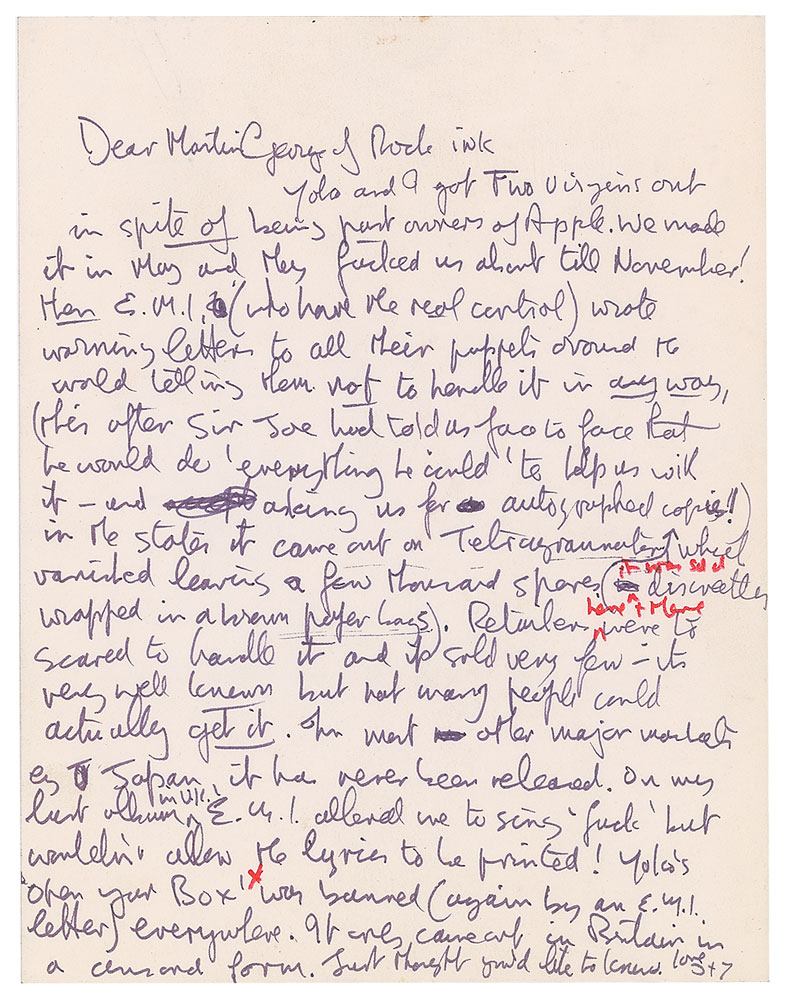 Dear Martin George of Rock ink
Yoko and I got Two Virgins out
in spite of being part owners of Apple. We made
it in May and they fucked us about till November!
then E.M.I. (who have the real control) wrote
warning letters to all their puppets around the
world telling them not to handle it in any way,
(this after Sir Joe had told us face to face that
he would do 'everything he could' to help us with
it – and asking us for autographed copies!!)
in the states it came out on Tetragrammaton, which
vanished leaving a few thousand spares (it was sold discreetley
wrapped in a brown paper bags). Retailers here + there were to
scared to handle it and it sold very few – its
very well known but not many people could
actually get it. In most other major markets
eg Japan it has never been released. On my
last album in U.K. E.M.I. allowed me to sing 'fuck' but
wouldn't allow the lyrics to be printed! Yoko's
'open your Box' x was banned (again by an E.M.I.
letter) everywhere. It only came out in Britain in
a censord form. Just thought you'd like to know. love
J+Y